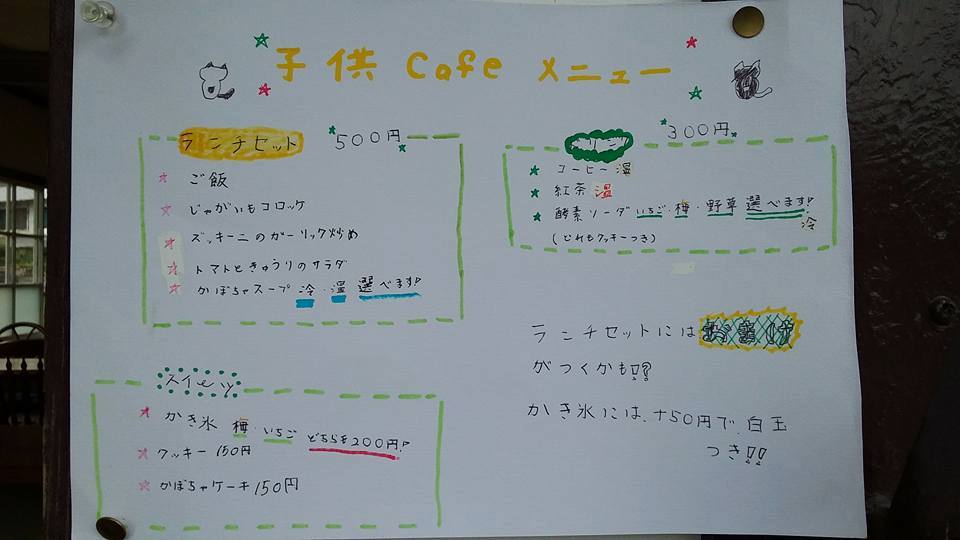 子供 Cafe メニュー
ランチセット 500円
ご飯
じゃがいもコロッケ
ズッキーニのガーリック炒め
トマトときゅうりのサラダ
かぼちゃスープ 冷・温 選べます!
スイーツ
かき氷 梅・いちご どちらも200円!
クッキー 150円
かぼちゃケーキ 150円
300円
コーヒー 温
紅茶 温
酵素ソーダ いちご・梅・野草 選べます! 冷
(どれもクッキーつき)
ランチセットにはお釣け
がつくかも!?
かき氷には、+50円で、白玉
つき!!